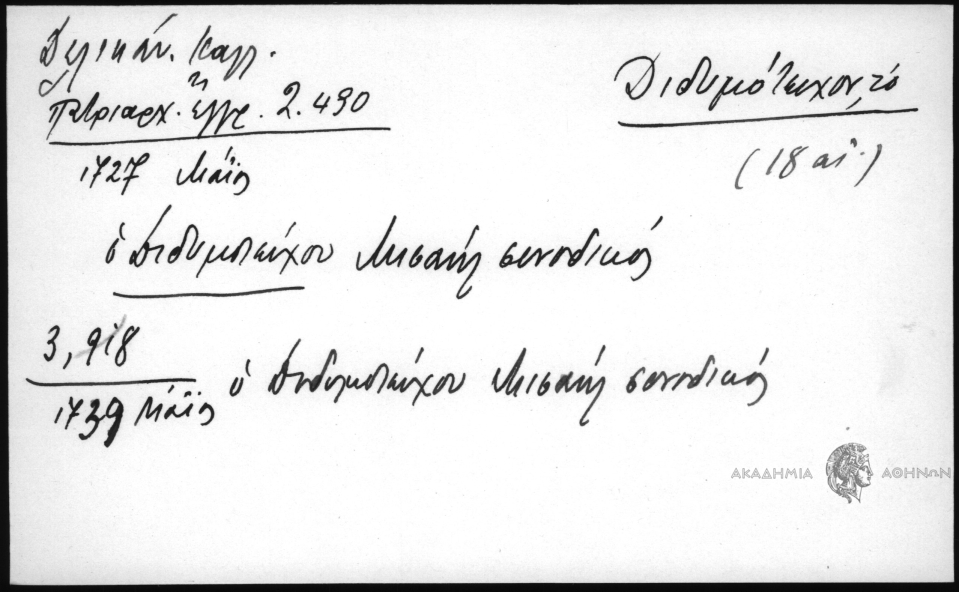 Δελικάν. Καλλ.
Πατριαρχ. Ἔγγρ. 2.490
Διδυμότειχον, τό
1727 Μάϊος
(18 αἰ.)
ὁ Διδυμοτείχου Μισαήλ συνοδικός
3, 918
1739 Μάϊος ὁ Διδυμοτείχου Μισαήλ συνοδικός
ΑΚΑΔΗΜΙΑ ΑΘΗΝΩΝ